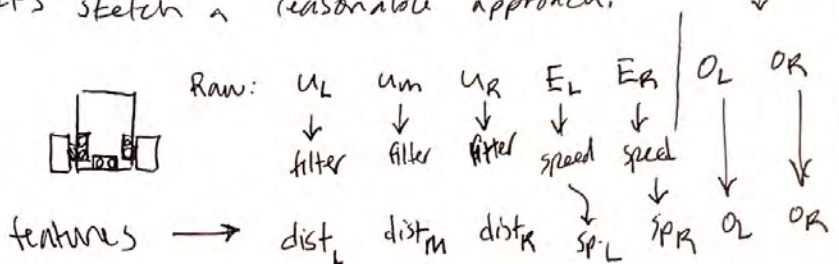 sketch a reasonable approach.
Raw: U_L U_m U_R E_L E_R | O_L O_R
filter filter filter speed speed
features → dist_L dist_M dist_R sp._L sp_R O_L O_R